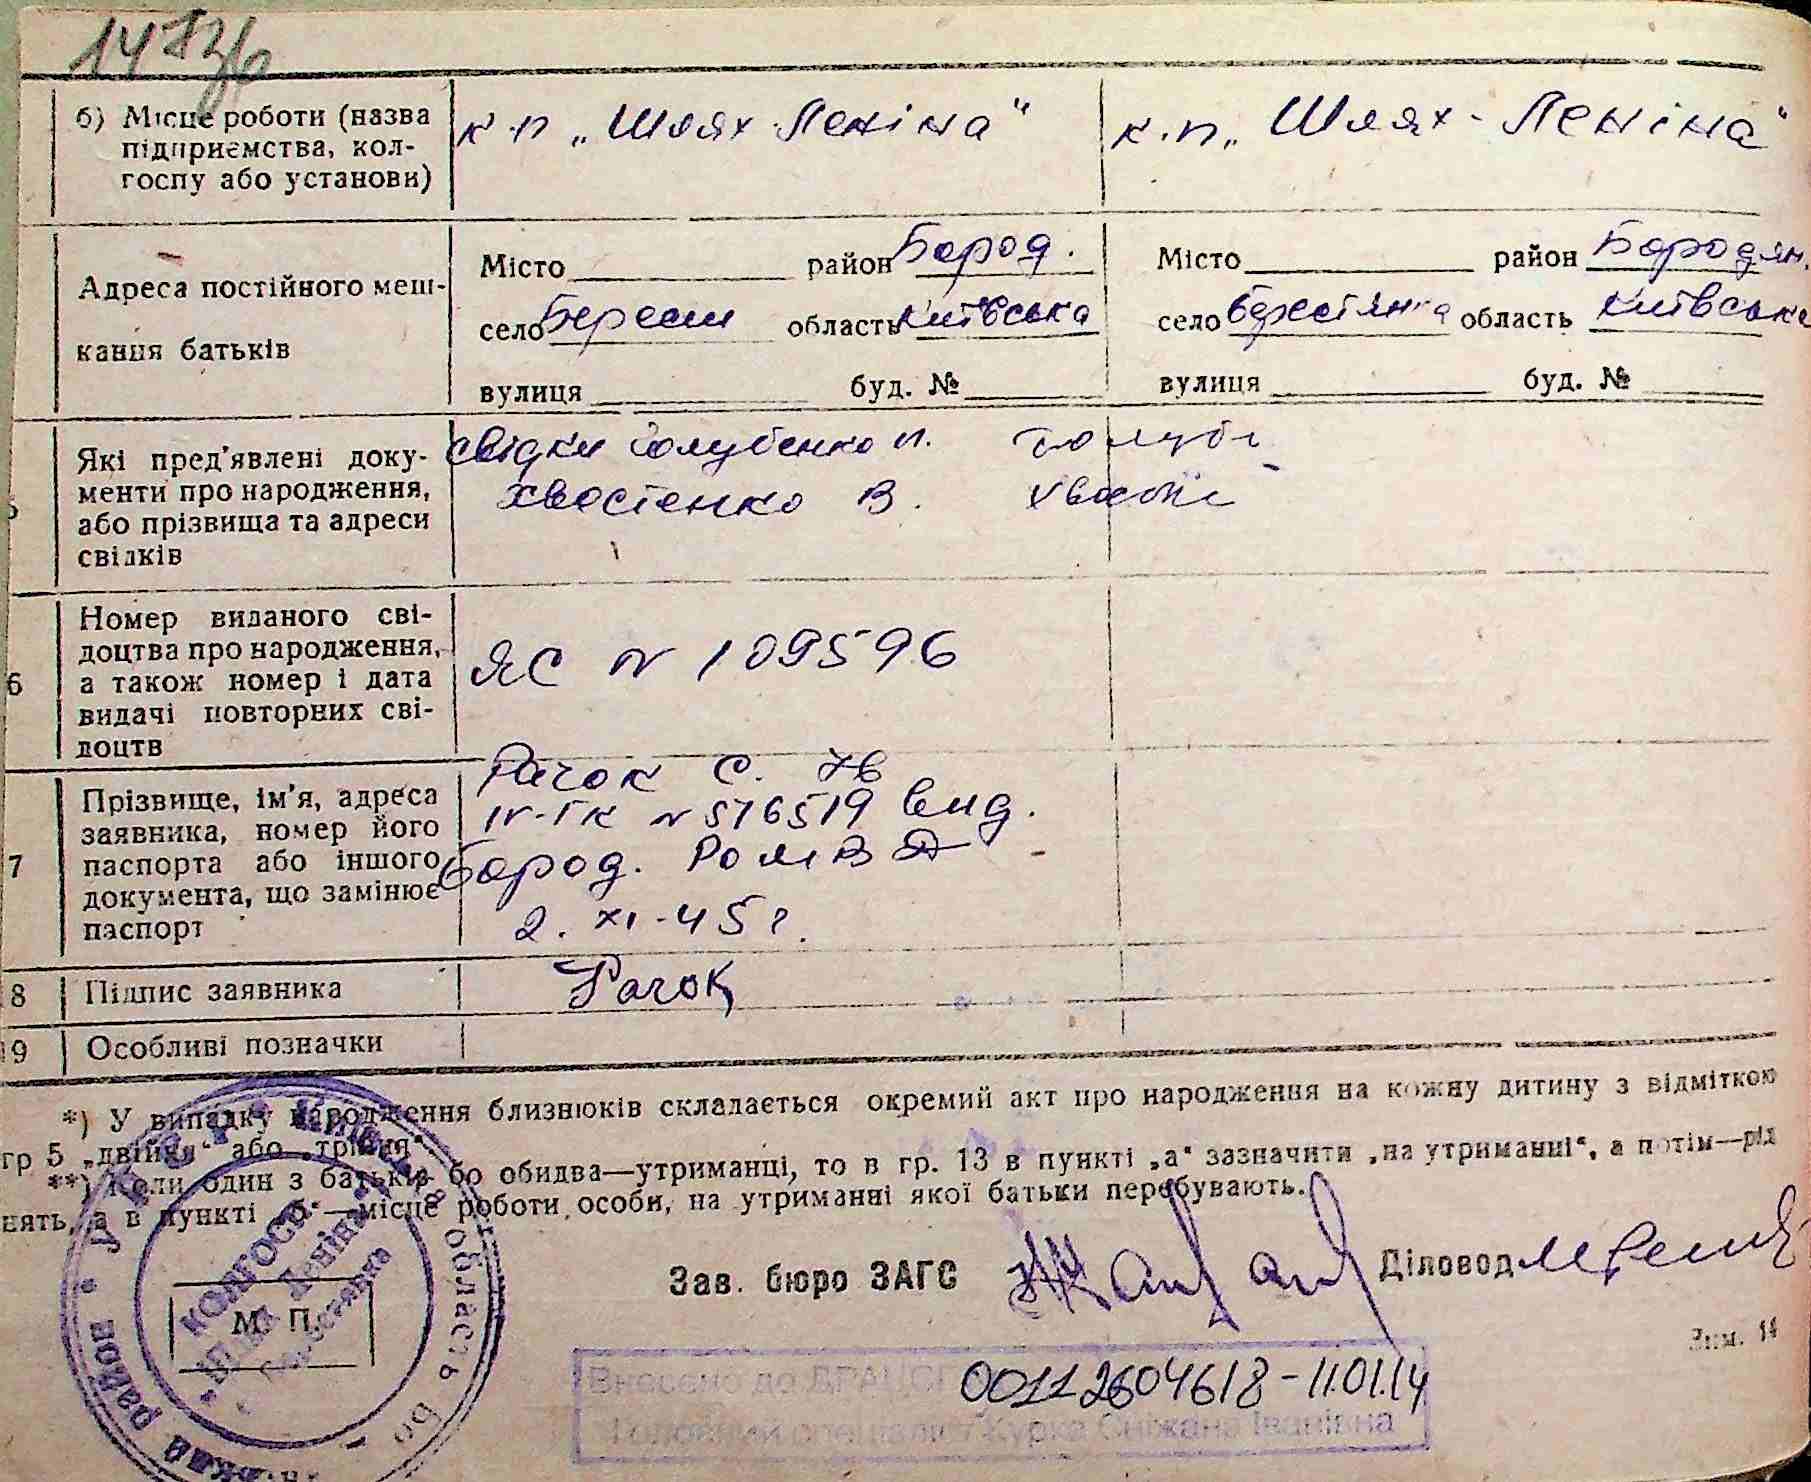 14
б) Місце роботи (назва підприємства, колгоспу або установи)
к.п „Шлях Леніна“
к.п. „Шлях-Леніна“
Адреса постійного мешкання батьків
Місто район Бород.
село Берест область Київська
вулиця буд. №
Місто район Бородян.
село Берестянка область Київська
вулиця буд. №
Які пред'явлені документи про народження, або прізвища та адреси свідків
свідки Голубенко П. Голуб
Хвостенко В.
6
Номер виданого свідоцтва про народження, а також номер і дата видачі повторних свідоцтв
ЯС № 109596
7
Прізвище, ім'я, адреса заявника, номер його паспорта або іншого документа, що замінює паспорт
Рачок С.
IV-ГК № 576519 вид.
Бород. РОМВД
2. XI-45 г.
18 Підпис заявника
Рачок
19 Особливі позначки
*) У випадку народження близнюків складається окремий акт про народження на кожну дитину з відміткою
гр 5 „двійня“ або „трійня“
**) Коли один з батьків бо обидва—утриманці, то в гр. 13 в пункті „а“ зазначити „на утриманні“, а потім—рід
нять, а в пункті „б“—місце роботи особи, на утриманні якої батьки перебувають.
Зав. бюро ЗАГС
Діловод
М. П.
КОЛГОСП
Шлях Леніна
Берестянка
область
район
Зам. 14
Внесено до ДРАЦСГ 00112604618-11.01.14
Головний спеціаліст Курка Сніжана Іванівна